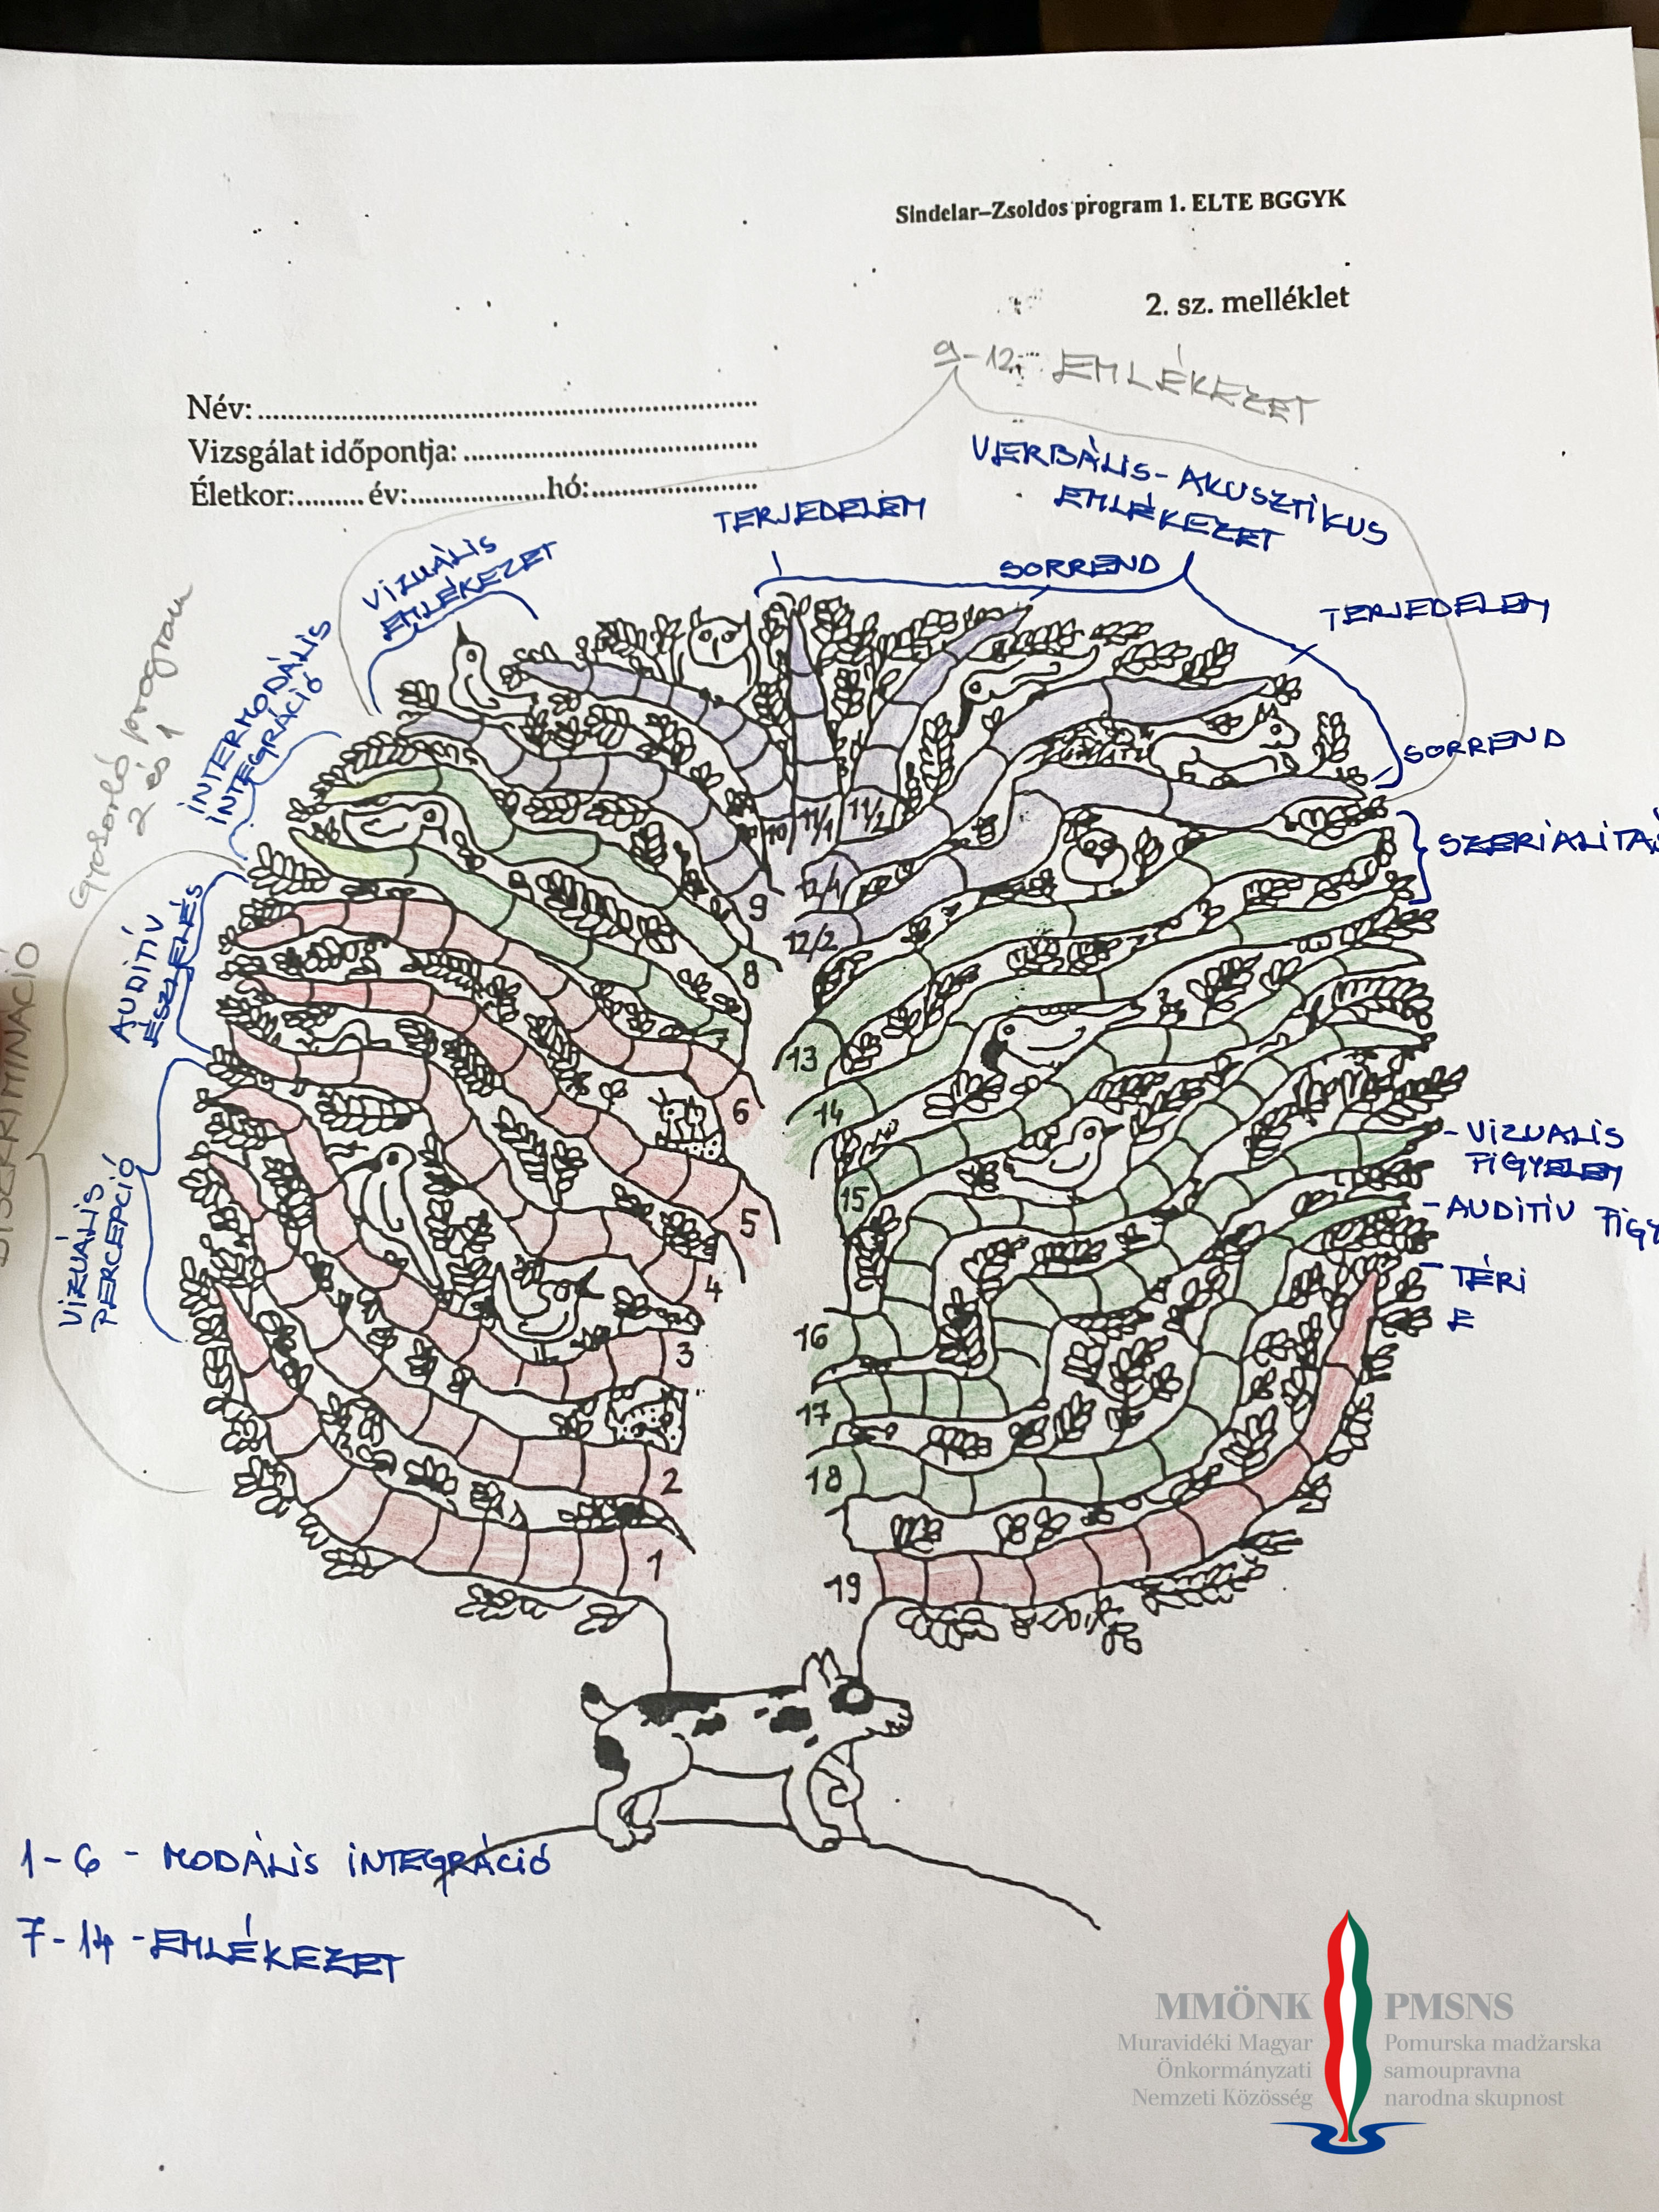 Sindelar–Zsoldos program 1. ELTE BGGYK
2. sz. melléklet
9-12. EMLÉKEZET
Név:
Vizsgálat időpontja:
Életkor:......... év:..................hó:
VERBÁLIS-AKUSZTIKUS
EMLÉKEZET
TERJEDELEM
SORREND
TERJEDELEM
SORREND
VIZUÁLIS
EMLÉKEZET
INTERMODÁLIS
INTEGRÁCIÓ
Gyorsorló program
2 és 1
SZERIALITÁS
AUDITÍV
ÉSZLELÉS
VIZUÁLIS
PERCEPCIÓ
DISZKRIMINÁCIÓ
- VIZUALIS
FIGYELEM
- AUDITIV FIGY
- TÉRI
E
10 11/1 11/2
9 12/1
8 12/2
13
6 14
5 15
4
3 16
17
2 18
1 19
1-6 - MODÁLIS INTEGRÁCIÓ
7-14 - EMLÉKEZET
MMÖNK PMSNS
Muravidéki Magyar Pomurska madžarska
Önkormányzati samoupravna
Nemzeti Közösség narodna skupnost